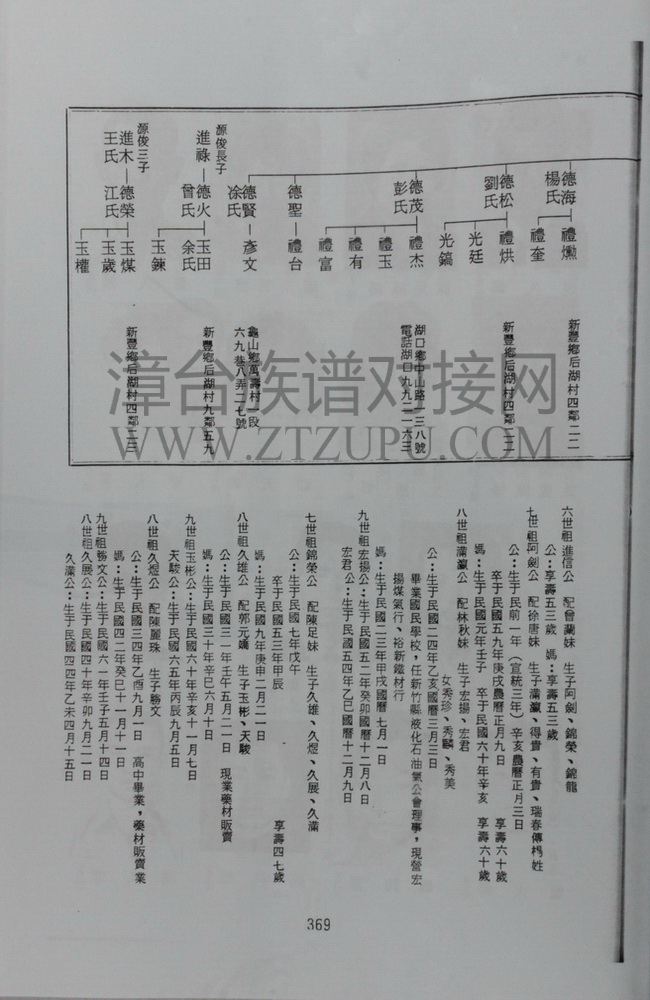 德海
楊氏
禮勳
禮奎
德松
劉氏
禮烘
光廷
光鎬
德茂
彭氏
禮杰
禮玉
禮有
禮富
德聖
禮台
德賢
凃氏
彥文
源俊長子
進祿
德火
曾氏
玉田
余氏
玉鍊
源俊三子
進木
王氏
德榮
江氏
玉煤
玉歲
玉權
新豐鄉后湖村四鄰二二
新豐鄉后湖村四鄰二二
湖口鄉中山路一三八號
電話湖口九九二一六三
龜山鄉萬壽村一段
六九巷八弄二七號
新豐鄉后湖村九鄰五九
新豐鄉后湖村四鄰二三
漳台族谱对接网
WWW.ZTZUPU.COM
六世祖進信公 配曾蘭妹 生子阿劍、錦榮、錦龍
公：享壽五三歲 媽：享壽五三歲
七世祖阿劍公 配徐唐妹 生子滿瀛、得貴、有貴、瑞春傳楊姓
公：生于民前一年（宣統三年）辛亥農曆正月三日
卒于民國五九年庚戌農曆正月九日 享壽六十歲
媽：生于民國元年壬子 卒于民國六十年辛亥 享壽六十歲
八世祖滿瀛公 配林秋妹 生子宏揚、宏君
女秀珍、秀麟、秀美
公：生于民國二四年乙亥國曆三月三日
畢業國民學校，任新竹縣液化石油氣公會理事，現營宏
揚煤氣行、裕新鐵材行
媽：生于民國二三年甲戌國曆七月一日
九世祖宏揚公：生于民國五二年癸卯國曆十二月八日
宏君公：生于民國五四年乙巳國曆十二月九日
七世祖錦榮公 配陳足妹 生子久雄、久煜、久展、久滿
公：生于民國七年戊午
卒于民國五三年甲辰 享壽四七歲
媽：生于民國九年庚申二月二一日
八世祖久雄公 配郭元嬌 生子玉彬、天駿
公：生于民國三一年壬午五月二一日 現業藥材販賣
媽：生于民國三十年辛巳六月十日
九世祖玉彬公：生于民國六十年辛亥十一月七日
天駿公：生于民國六五年丙辰九月五日
八世祖久煜公 配陳麗珠 生子勝文
公：生于民國三四年乙酉九月一日 高中畢業，藥材販賣業
媽：生于民國四二年癸巳十一月十一日
九世祖勝文公：生于民國六一年壬子五月十四日
八世祖久展公：生于民國四十年辛卯九月二一日
久滿公：生于民國四四年乙未四月十五日
369